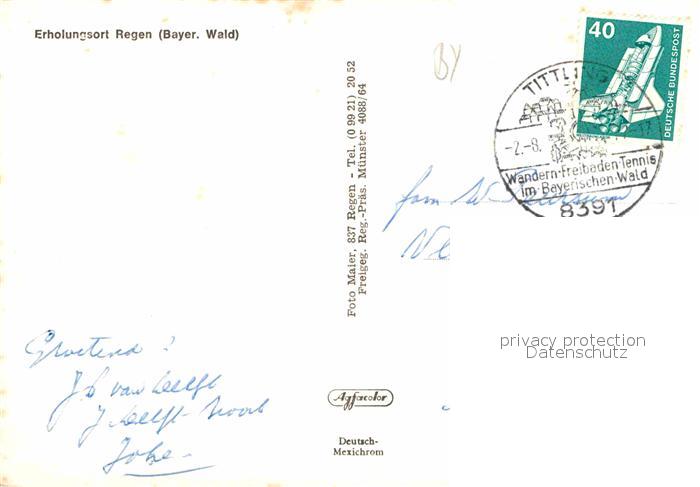 Erholungsort Regen (Bayer. Wald)
BY
40
DEUTSCHE BUNDESPOST
TITTLING
-2.-8.
-17
Wandern-Freibaden-Tennis
im-Bayerischen-Wald
8391
Foto Maier, 837 Regen - Tel. (0 99 21) 20 52
Freigeg. Reg.-Präs. Münster 4088/64
fam
privacy protection
Datenschutz
Groetend
van Delft
Delft-
Agfacolor
Deutsch-
Mexichrom